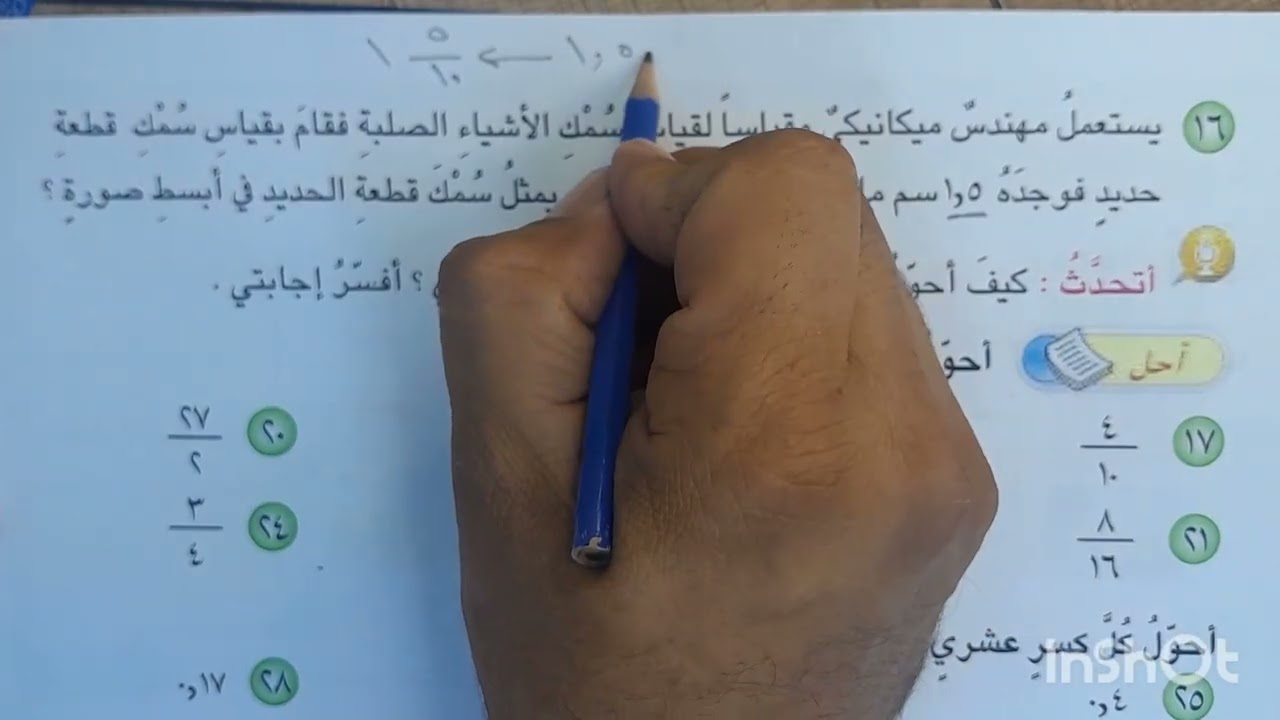 ١,٥ ← ١ ٥/١٠
١٦ يستعملُ مهندسٌ ميكانيكيٌّ مقياساً لقياسِ سُمْكِ الأشياءِ الصلبةِ فقامَ بقياسِ سُمْكِ قطعةِ
حديدٍ فوجدَهُ ١,٥ سم يمثلُ سُمْكَ قطعةِ الحديدِ في أبسطِ صورةٍ ؟
أتحدَّثُ : كيفَ ؟ أفسّرُ إجابتي .
أحل
١٧ ٤/١٠
٢٠ ٢٧/٢
٢١ ٨/١٦
٢٤ ٣/٤
أحوّلُ كُلَّ كسرٍ عشري
٢٥ ٠,٤
٢٨ ٠,١٧
inshot